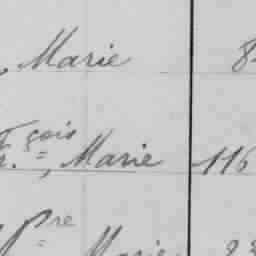 , Marie 8
Fr.çois, Marie 116
Pre Marie